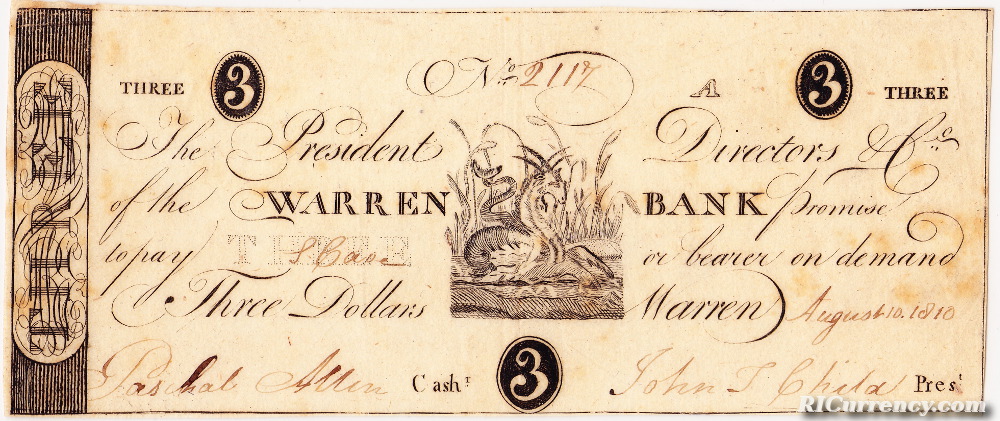 THREE 3 No. 2117 A 3 THREE
The President Directors & Co.
of the WARREN BANK promise
to pay THREE or bearer on demand
Three Dollars Warren August 10. 1810
Paschal Allen Cashr 3 John T Child Prest
THREE
RICurrency.com